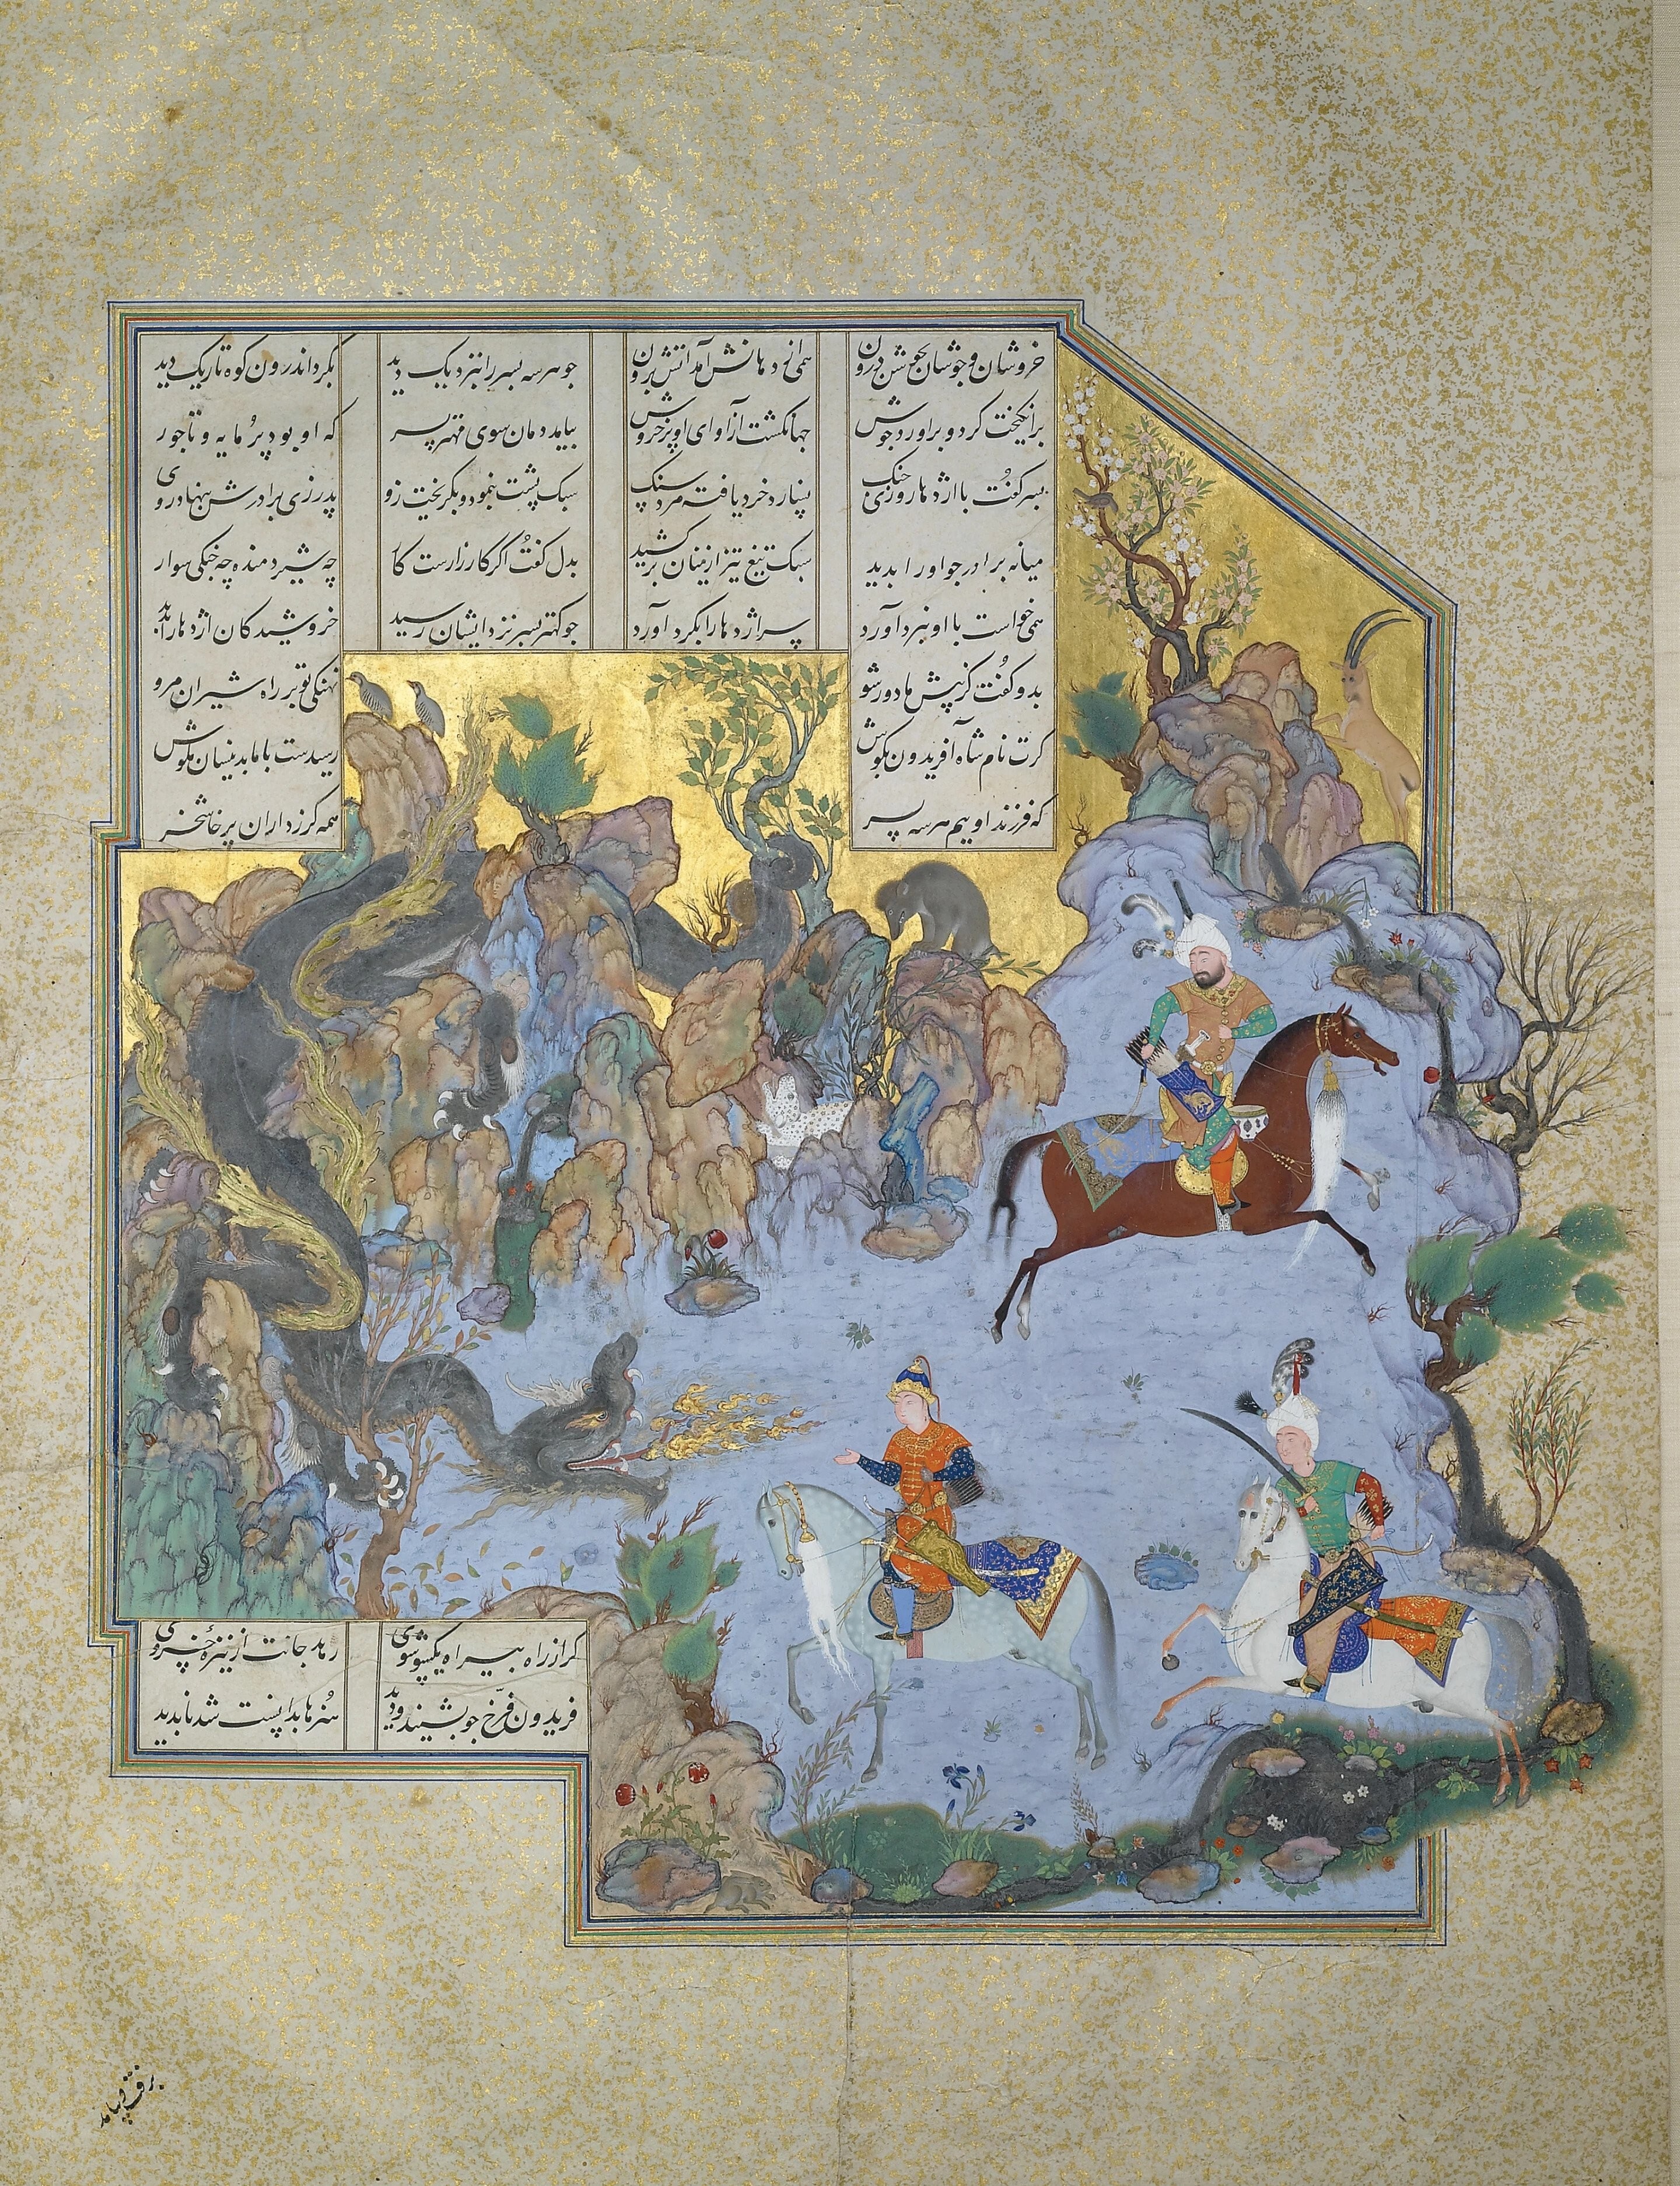 خروشان و جوشان بجوشش درون همی از دهانش آمد آتش برون چو هر سه پسر را بنزدیک دید بگرد اندرون کوه تاریک دید
برانگیخت گرد و برآورد جوش جهان گشت از آوای او پر خروش بیامد دمان سوی مهتر پسر که او بود پرمایه و تاجور
پسر گفت با اژدها روز جنگ نسازد خرد یافته مرد سنگ سبک پشت بنمود و بگریخت زوی پدر زی برادرش بنهاد روی
میانه برادر چو او را بدید سبک تیغ تیز از میان برکشید بدل گفت اگر کارزارست کار چه شیر دمنده چه جنگی سوار
همی خواست با او نبرد آورد سر اژدها را بگرد آورد چو کهتر پسر نزد ایشان رسید خروشید کان اژدها را بدید
بدو گفت کز پیش ما دور شو نهنگی تو بر راه شیران مرو
گرت نام شاه آفریدون بگوش رسیدست با ما بدینسان مکوش
که فرزند اوییم هر سه پسر همه گرزداران پرخاشخر
گر از راه بیراه یکسو شوی رهد جانت از نیزهٔ خسروی
فریدون فرخ چو بشنید و دید هنرها بدانست شد ناپدید
برفت و بیامد